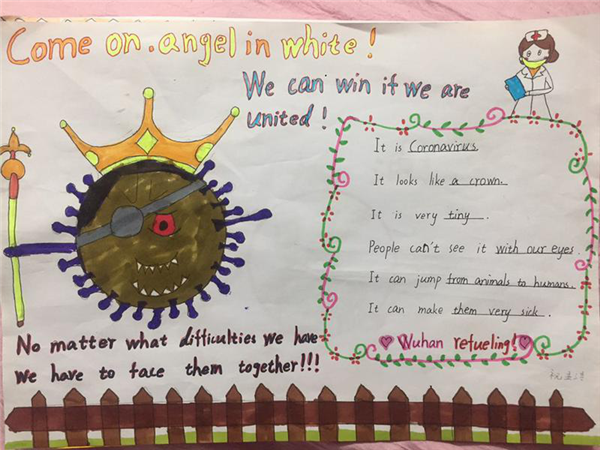 Come on. angel in white!
We can win if we are
united!
It is Coronavirus
It looks like a crown.
It is very tiny.
People can't see it with our eyes.
It can jump from animals to humans.
It can make them very sick.
Wuhan refueling!
No matter what difficulties we have
we have to face them together!!!